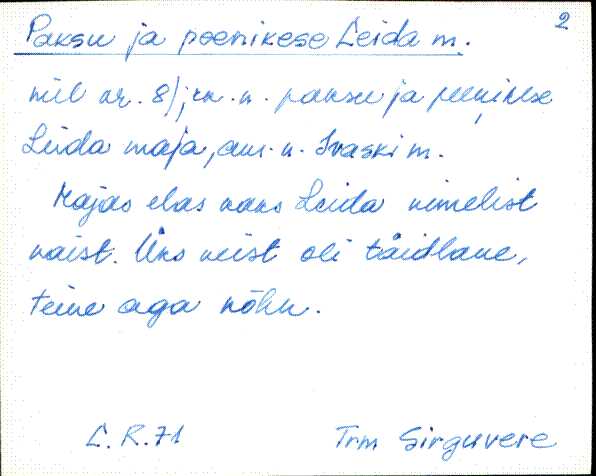 2
Paksu ja peenikese Leida m.
maja nr. 8); rn. n. paksu ja peenikese
Leida maja, am. n. Ivaski m.
Majas elas kaks Leida nimelist
naist. Üks neist oli täidlane,
teine aga kõhn.
L. R. 71 Trm Sirguvere